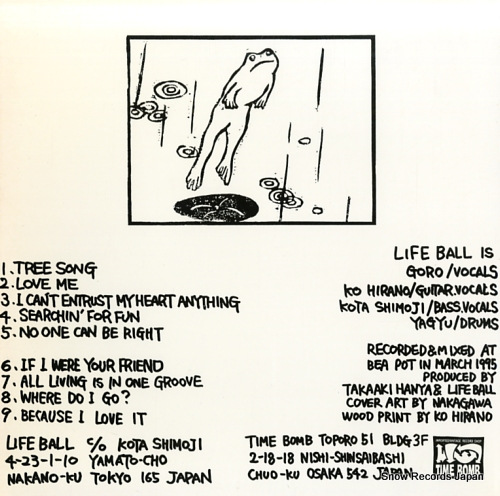 1. TREE SONG
2. LOVE ME
3. I CAN'T ENTRUST MY HEART ANYTHING
4. SEARCHIN' FOR FUN
5. NO ONE CAN BE RIGHT
6. IF I WERE YOUR FRIEND
7. ALL LIVING IS IN ONE GROOVE
8. WHERE DO I GO?
9. BECAUSE I LOVE IT
LIFE BALL IS
GORO/VOCALS
KO HIRANO/GUITAR.VOCALS
KOTA SHIMOJI/BASS.VOCALS
YAGYU/DRUMS
RECORDED & MIXED AT
BEA POT IN MARCH 1995
PRODUCED BY
TAKAAKI HANYA & LIFE BALL
COVER ART BY NAKAGAWA
WOOD PRINT BY KO HIRANO
LIFE BALL c/o KOTA SHIMOJI
4-23-1-10 YAMATO-CHO
NAKANO-KU TOKYO 165 JAPAN
TIME BOMB TOPORO 51 BLDG 3F
2-18-18 NISHI-SHINSAIBASHI
CHUO-KU OSAKA 542 JAPAN
TIME BOMB
Snow Records Japan